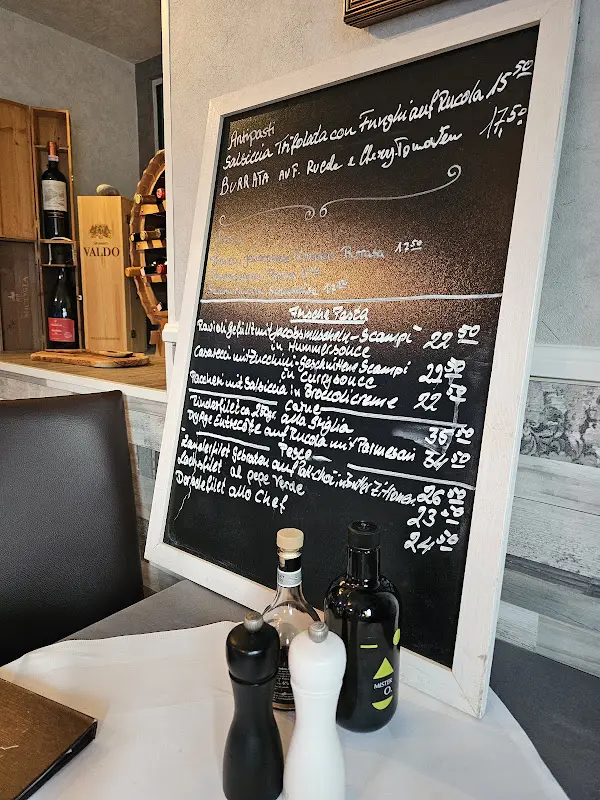 VALDO
Antipasti
Salsiccia Trifolata con Funghi auf Rucola 15,50
BURRATA auf. Rucola e Cherry-Tomaten 17,50
17,50
Frische Pasta
Ravioli gefüllt mit Jacobsmuscheln-Scampi
in Hummersouce 22,50
Casarecci mit Zucchini-geschnitten Scampi
in Currysouce 22,50
Paccheri mit Salsiccia in Broccolicreme 22
Carne
Rinderfilet ca 250gr. alla Griglia 35,50
DryAge Entrecôte auf Rucola mit Parmesan 34,50
Pesce
Zanderfilet Gebraten auf Pak-choi 26,50
Lachsfilet al pepe Verde 23,50
Doradefilet allo Chef 24,50
MISTER
O.